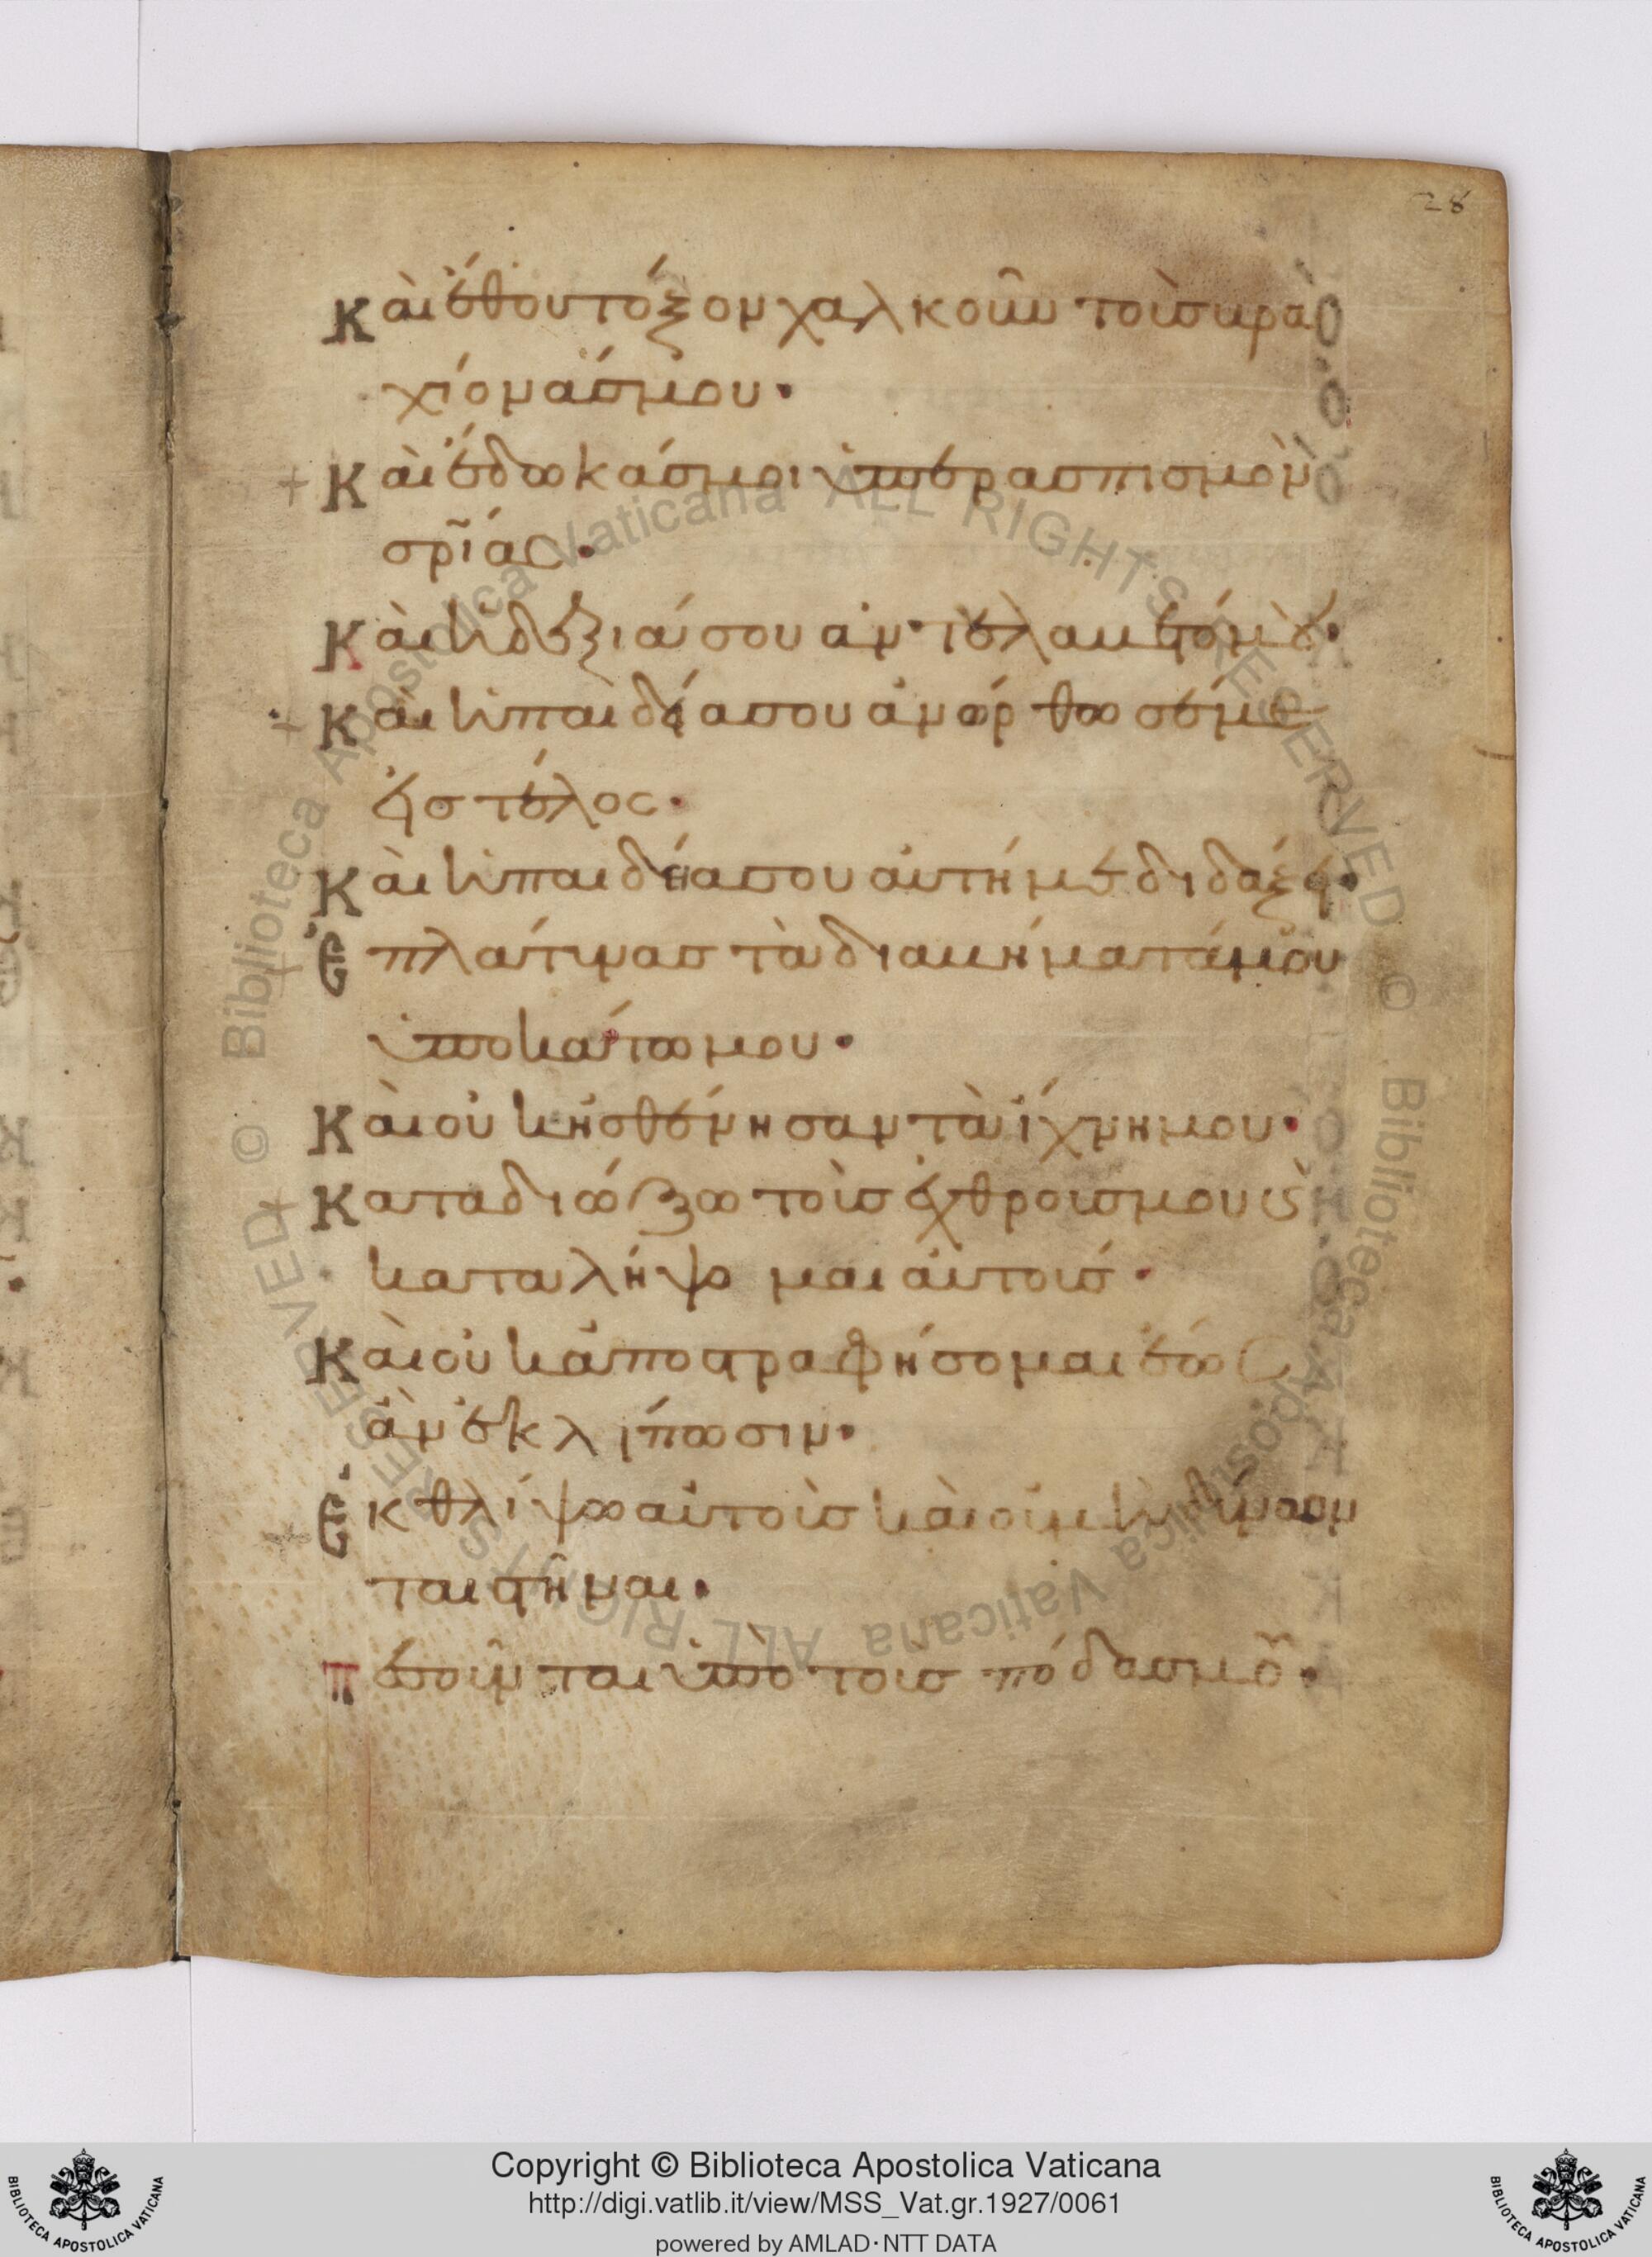 28
Καὶ ἔθου τόξον χαλκοῦν τοὺς βρα
χίονάς μου·
Καὶ ἔδωκάς μοι ὑπερασπισμὸν
σρ̃ίας·
Καὶ ἡ δεξιά σου ἀντελάβετό μου·
Καὶ ἡ παιδεία σου ἀνώρθωσέ με
εἰς τέλος·
Καὶ ἡ παιδεία σου αὐτή με διδάξει·
Ἐπλάτυνας τὰ διαβήματά μου
ὑποκάτω μου·
Καὶ οὐκ ἠσθένησαν τὰ ἴχνη μου·
Καταδιώξω τοὺς ἐχθρούς μου ϗ
καταλήψομαι αὐτούς·
Καὶ οὐκ ἀποστραφήσομαι ἕως
ἂν ἐκλίπωσιν·
Ἐκθλίψω αὐτοὺς καὶ οὐ μὴ δύνων
ται στῆναι·
Πεσοῦνται ὑπὸ τοὺς πόδας μου·
Copyright © Biblioteca Apostolica Vaticana
http://digi.vatlib.it/view/MSS_Vat.gr.1927/0061
powered by AMLAD·NTT DATA
BIBLIOTECA APOSTOLICA VATICANA
BIBLIOTECA APOSTOLICA VATICANA
© Biblioteca Apostolica Vaticana ALL RIGHTS RESERVED © Biblioteca Apostolica Vaticana ALL RIGHTS RESERVED